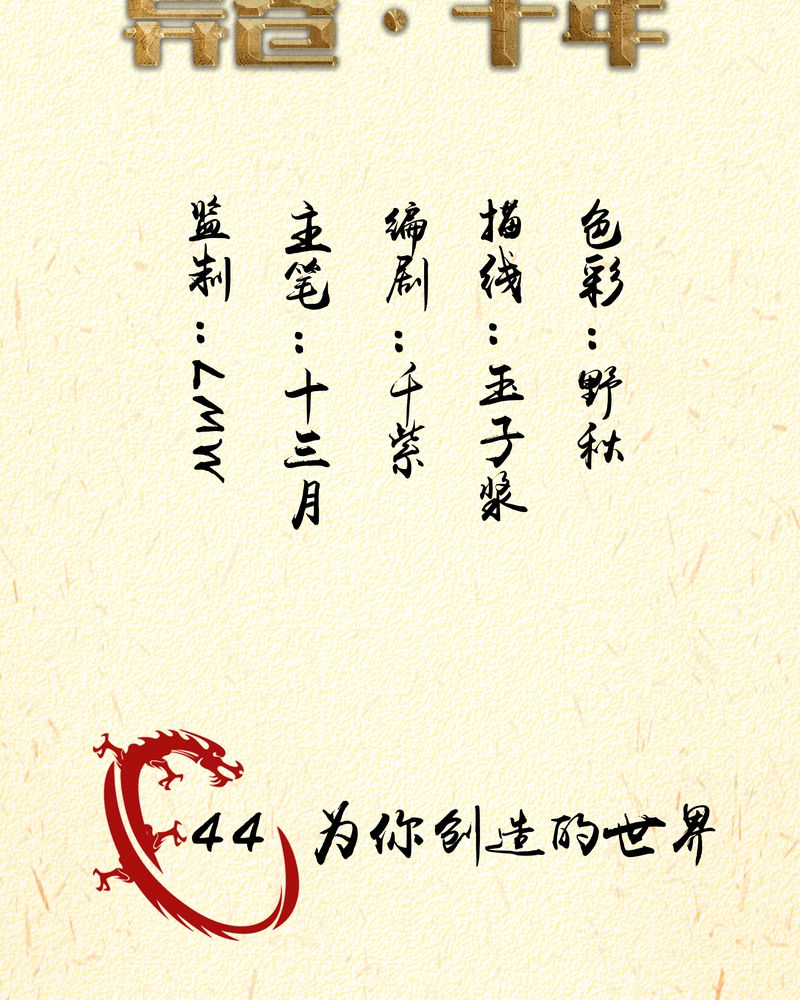 千年
监制：
主笔：十三月
编剧：千紫
描线：玉子浆
色彩：野秋
44 为你创造的世界